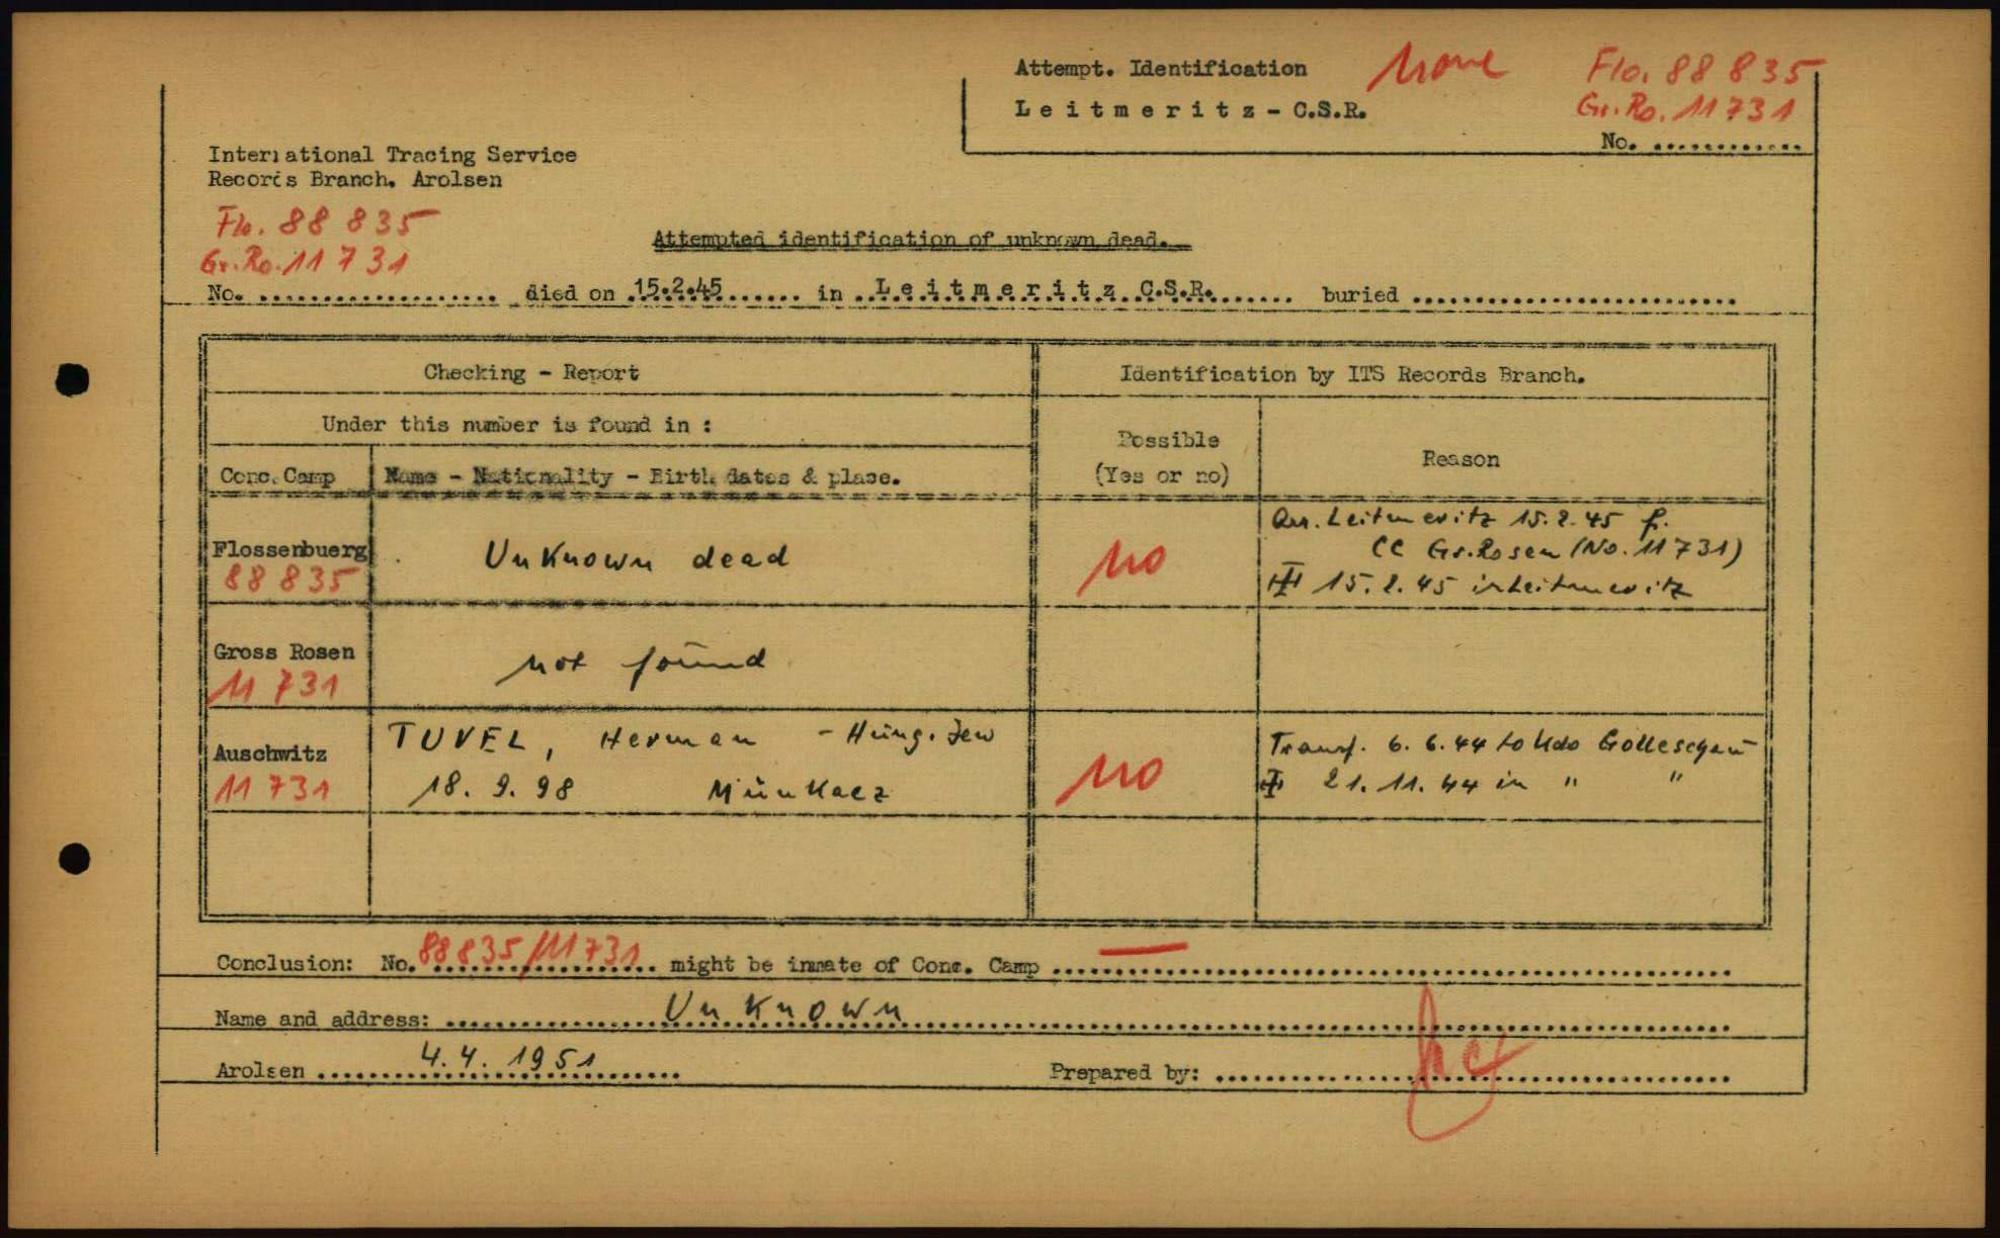 Attempt. Identification none Flo. 88 835
L e i t m e r i t z - C.S.R. Gr. Ro. 11 731
No. ............
International Tracing Service
Records Branch. Arolsen
Flo. 88 835
Gr. Ro. 11 731
Attempted identification of unknown dead.
No. .................. died on 15.2.45 ...... in L e i t m e r i t z C.S.R. ...... buried .........................
Checking - Report Identification by ITS Records Branch.
Under this number is found in :
Possible
(Yes or no)
Reason
Conc. Camp Name - Nationality - Birth dates & place.
Flossenbuerg
88 835
Unknown dead
no
Arr. Leitmeritz 15.2.45 f.
CC Gr. Rosen (No. 11 731)
15.2.45 in Leitmeritz
Gross Rosen
11 731
not found
Auschwitz
11 731
TUVEL, Herman - Hung. Jew
18. 9. 98 Munkacz
no
Transf. 6.6.44 to Kdo Golleschau
21.11.44 in " "
Conclusion: No. 88 835/11 731 might be inmate of Conc. Camp —
Name and address: Unknown
Arolsen 4.4.1951 Prepared by: